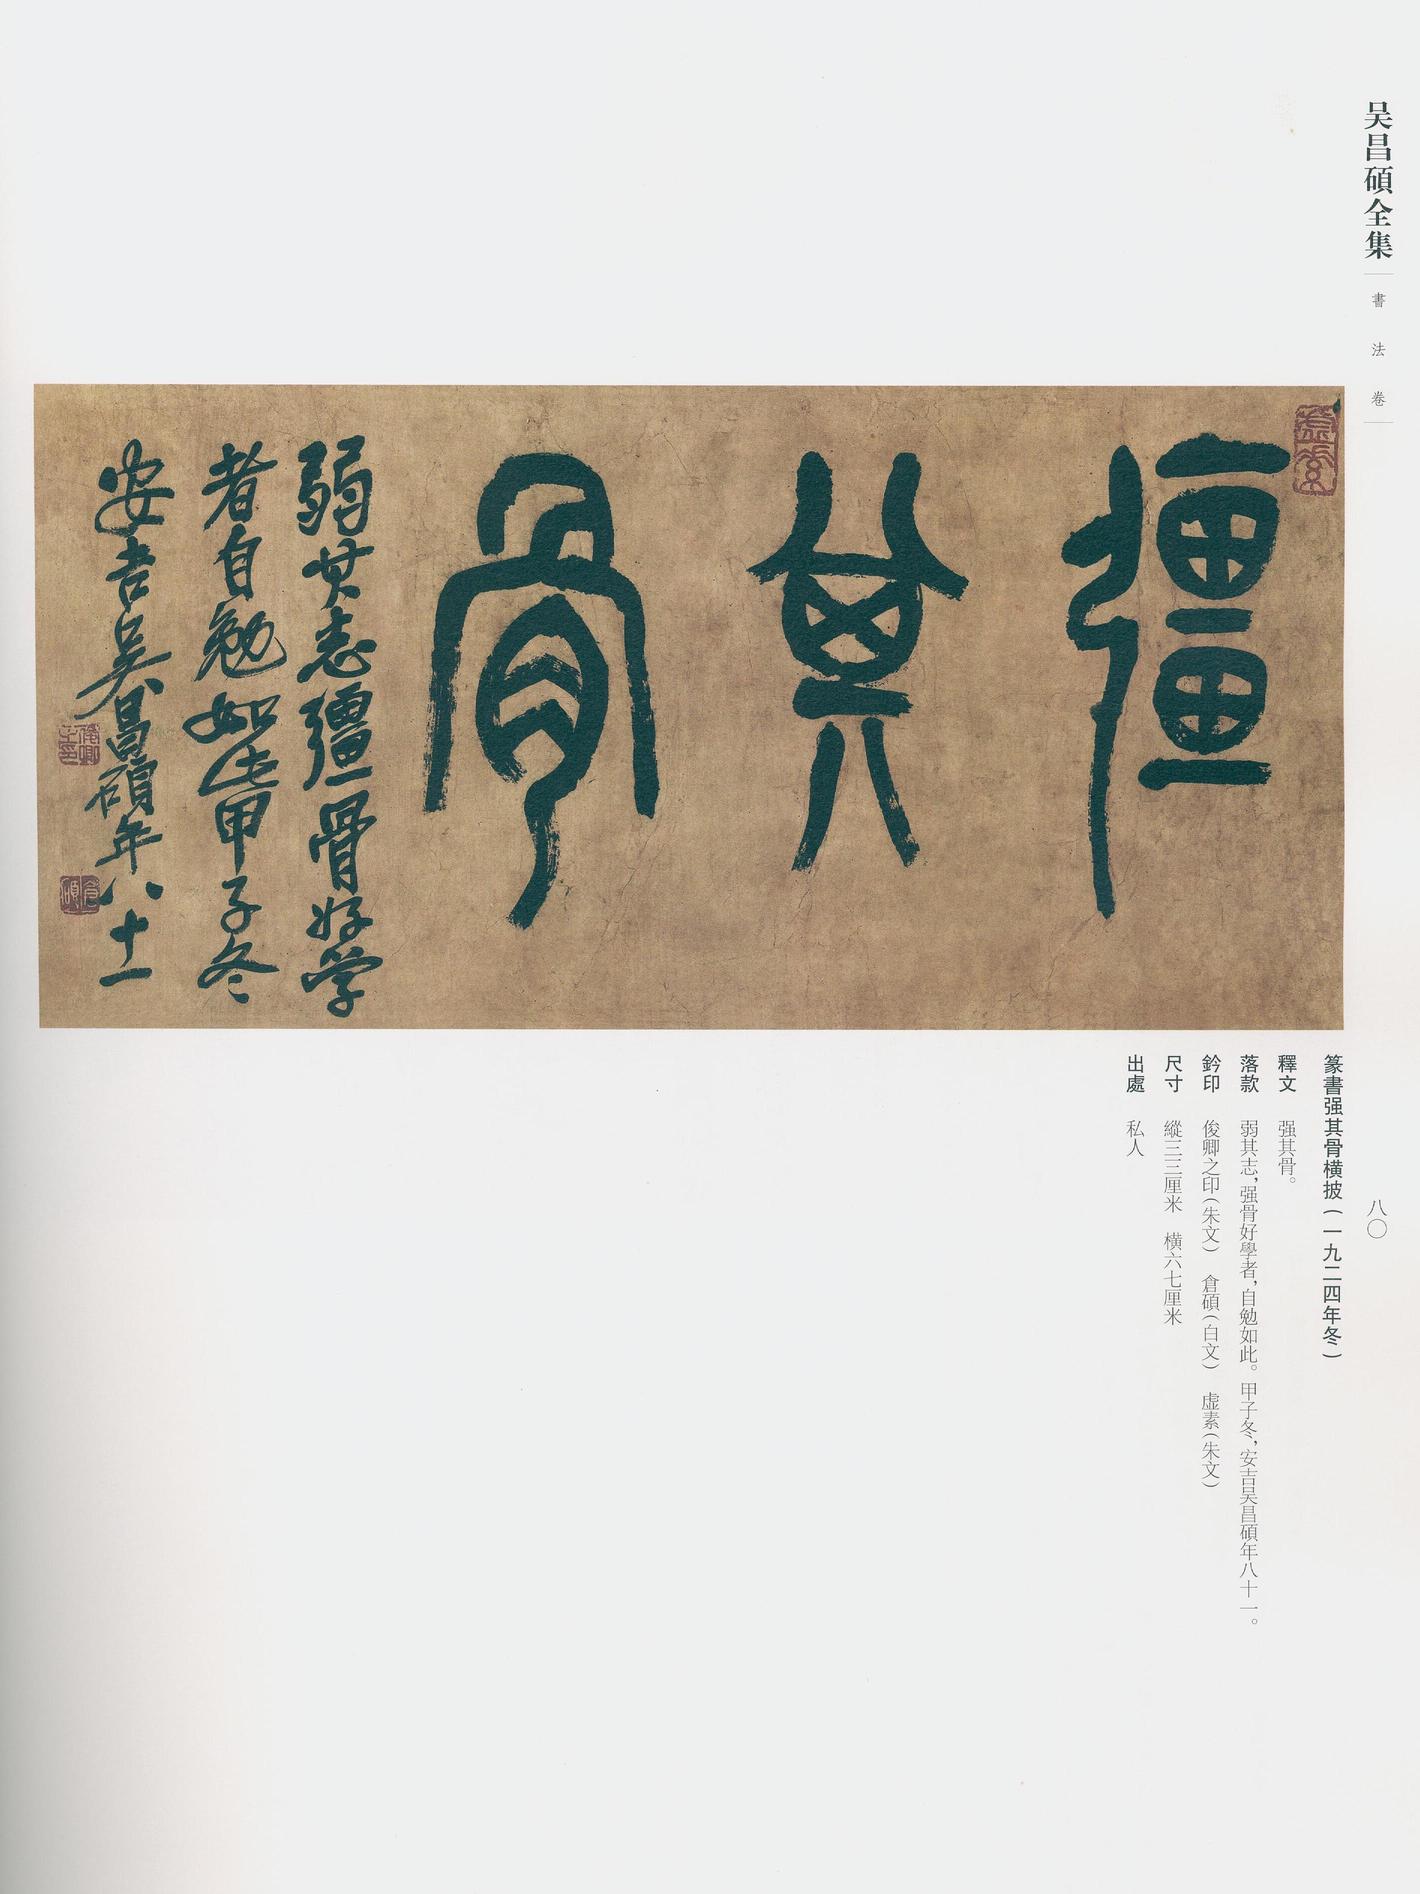 吴昌碩全集
書法卷
彊其骨
弱其志彊骨好学
者自勉如此甲子冬
安吉吴昌碩年八十一
虚素
俊卿之印
倉碩
篆書强其骨横披(一九二四年冬)
釋文 强其骨。
落款 弱其志，强骨好學者，自勉如此。甲子冬，安吉吴昌碩年八十一。
鈐印 俊卿之印(朱文) 倉碩(白文) 虚素(朱文)
尺寸 縱三三厘米 横六七厘米
出處 私人
八〇